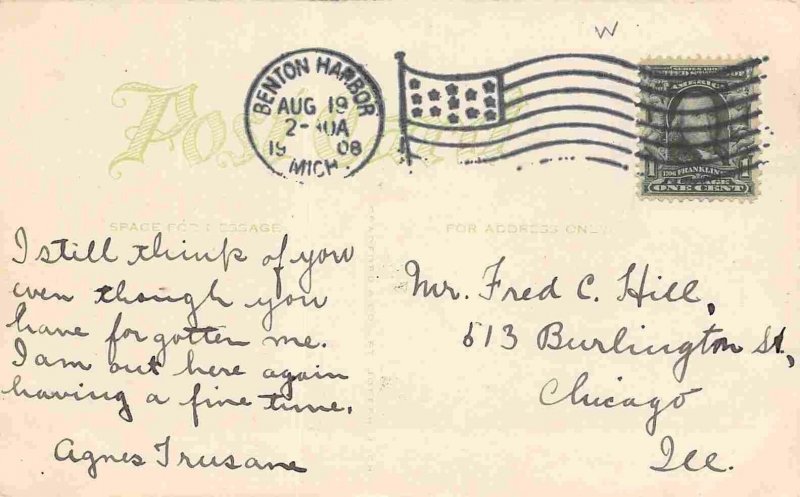 W
Post Card
BENTON HARBOR
AUG 19
2- 10A
19 08
MICH
SERIES 1902
UNITED STATES OF
AMERICA
1706 FRANKLIN
POSTAGE
ONE CENT
SPACE FOR MESSAGE
I still think of you
even though you
have forgotten me.
I am out here again
having a fine time.
Agnes Trusane
FOR ADDRESS ONLY
Mr. Fred C. Hill,
513 Burlington St,
Chicago
Ill.